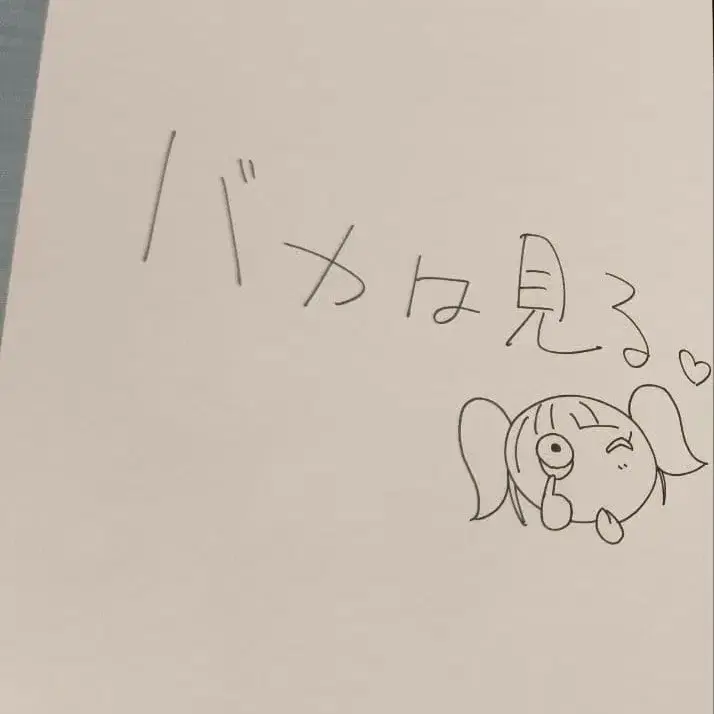 バカは見る♡